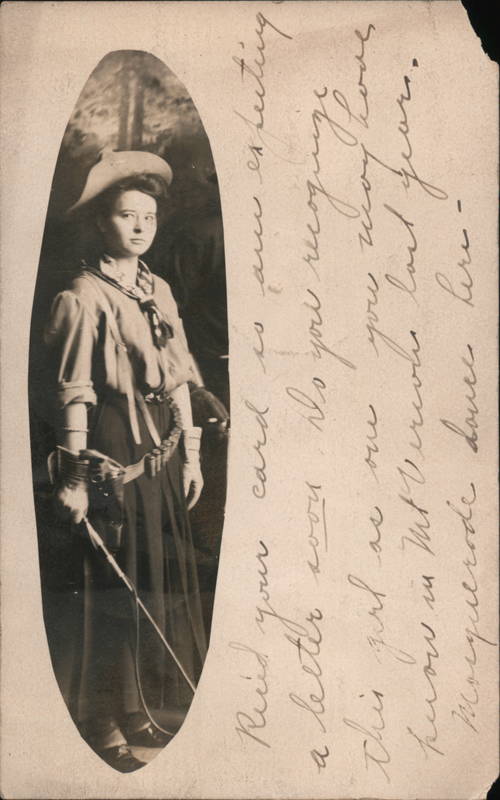 Rec'd your card so am expecting
a letter soon. Do you recognize
this girl as one you may have
know in Mt Vernon last year.
Masquerade dance here-